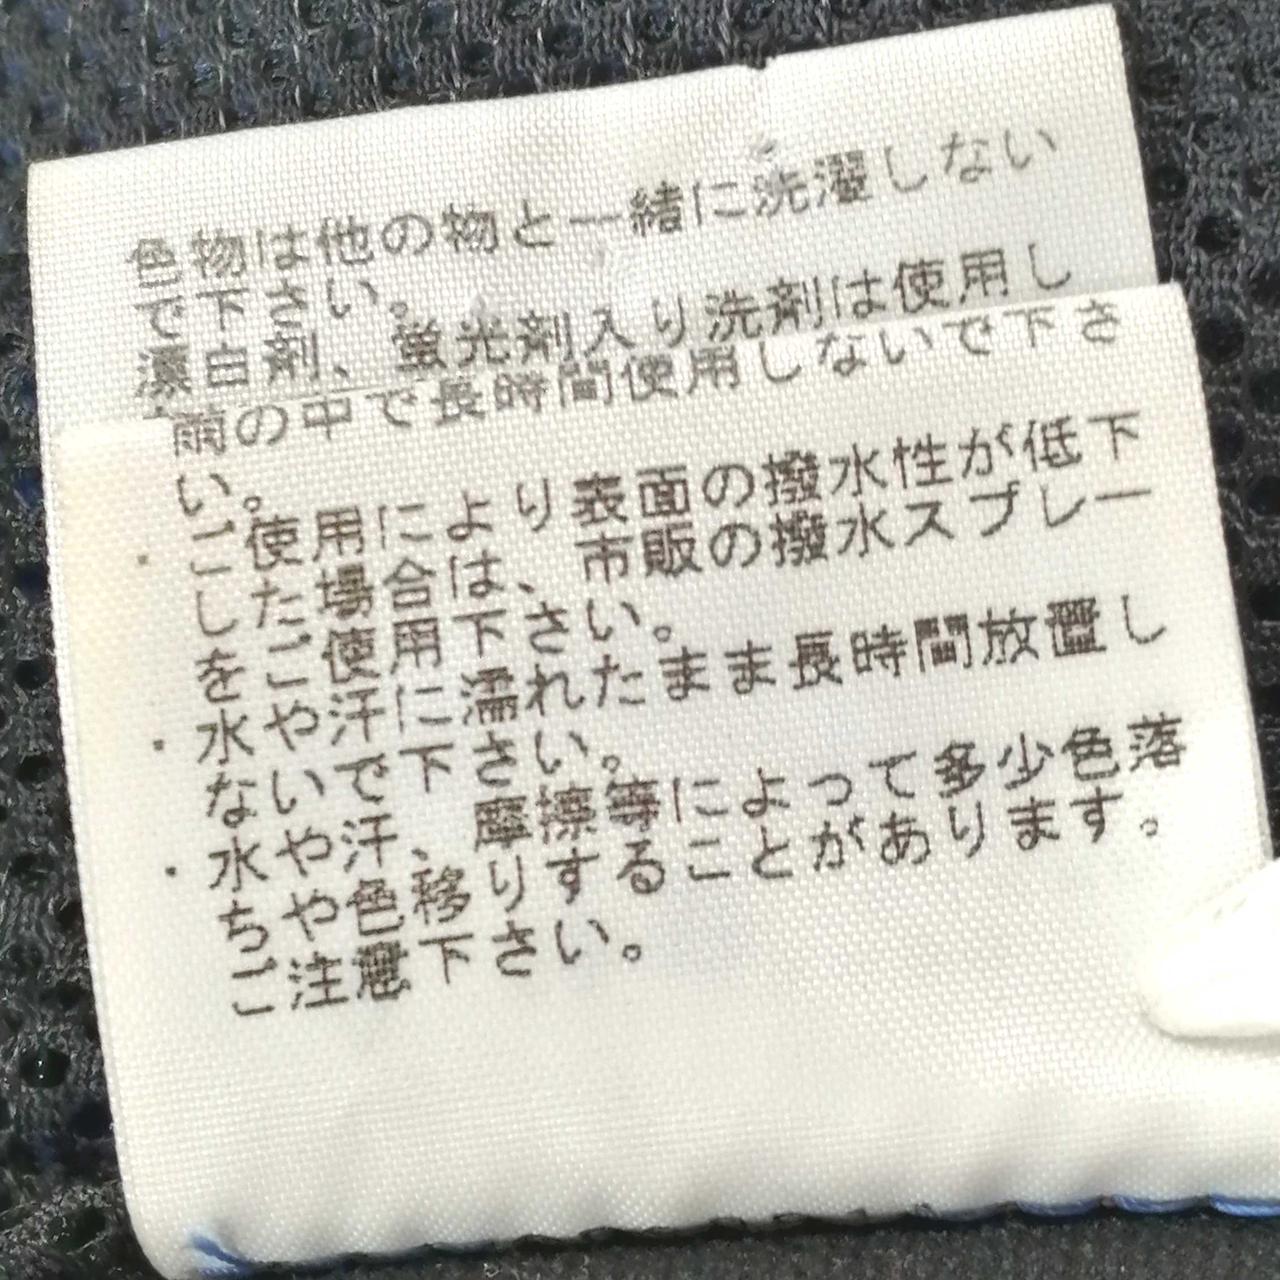 色物は他の物と一緒に洗濯しない
で下さい。
漂白剤、蛍光剤入り洗剤は使用し
雨の中で長時間使用しないで下さ
い。
・ご使用により表面の撥水性が低下
した場合は、市販の撥水スプレー
をご使用下さい。
・水や汗に濡れたまま長時間放置し
ないで下さい。
・水や汗、摩擦等によって多少色落
ちや色移りすることがあります。
ご注意下さい。